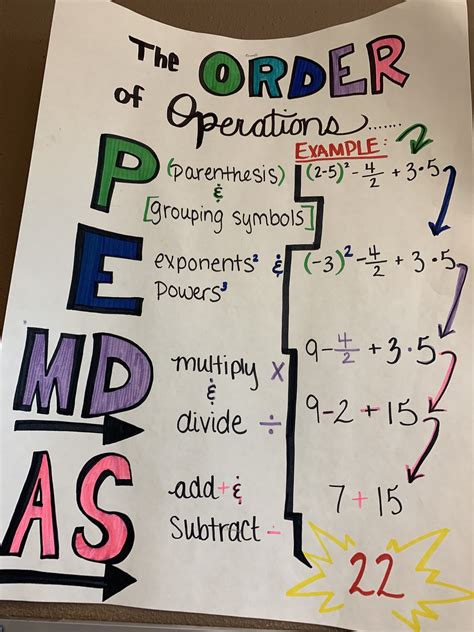 The ORDER
of Operations......
EXAMPLE:
P (parenthesis)
&
[grouping symbols]
(2-5)² - 4/2 + 3·5
E exponents² &
Powers³
(-3)² - 4/2 + 3·5
MD multiply ×
&
divide ÷
9 - 4/2 + 3·5
9-2+15
AS add + &
Subtract -
7+15
22